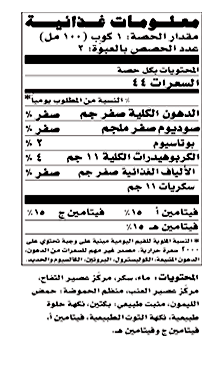 معلومات غذائية
مقدار الحصة: ١ كوب (١٠٠ مل)
عدد الحصص بالعبوة: ٢
المحتويات بكل حصة
السعرات ٤٤
% النسبة من المطلوب يومياً*
الدهون الكلية صفر جم صفر %
صوديوم صفر ملجم صفر %
بوتاسيوم ٢ %
الكربوهيدرات الكلية ١١ جم ٤ %
الألياف الغذائية صفر جم صفر %
سكريات ١١ جم
فيتامين أ ١٥% فيتامين ج ١٥%
فيتامين هـ ١٥%
* النسبة المئوية للقيم اليومية مبنية على وجبة تحتوي على
٢٠٠٠ سعرة حرارية. مصدر غير مهم للسعرات من الدهون،
الدهون المشبعة، الكوليسترول، البروتين، الكالسيوم والحديد.
المحتويات: ماء، سكر، مركز عصير التفاح،
مركز عصير العنب، منظم الحموضة: حمض
الليمون، مثبت طبيعي: بكتين، نكهة حلوة
طبيعية، نكهة التوت الطبيعية، فيتامين أ،
فيتامين ج وفيتامين هـ.